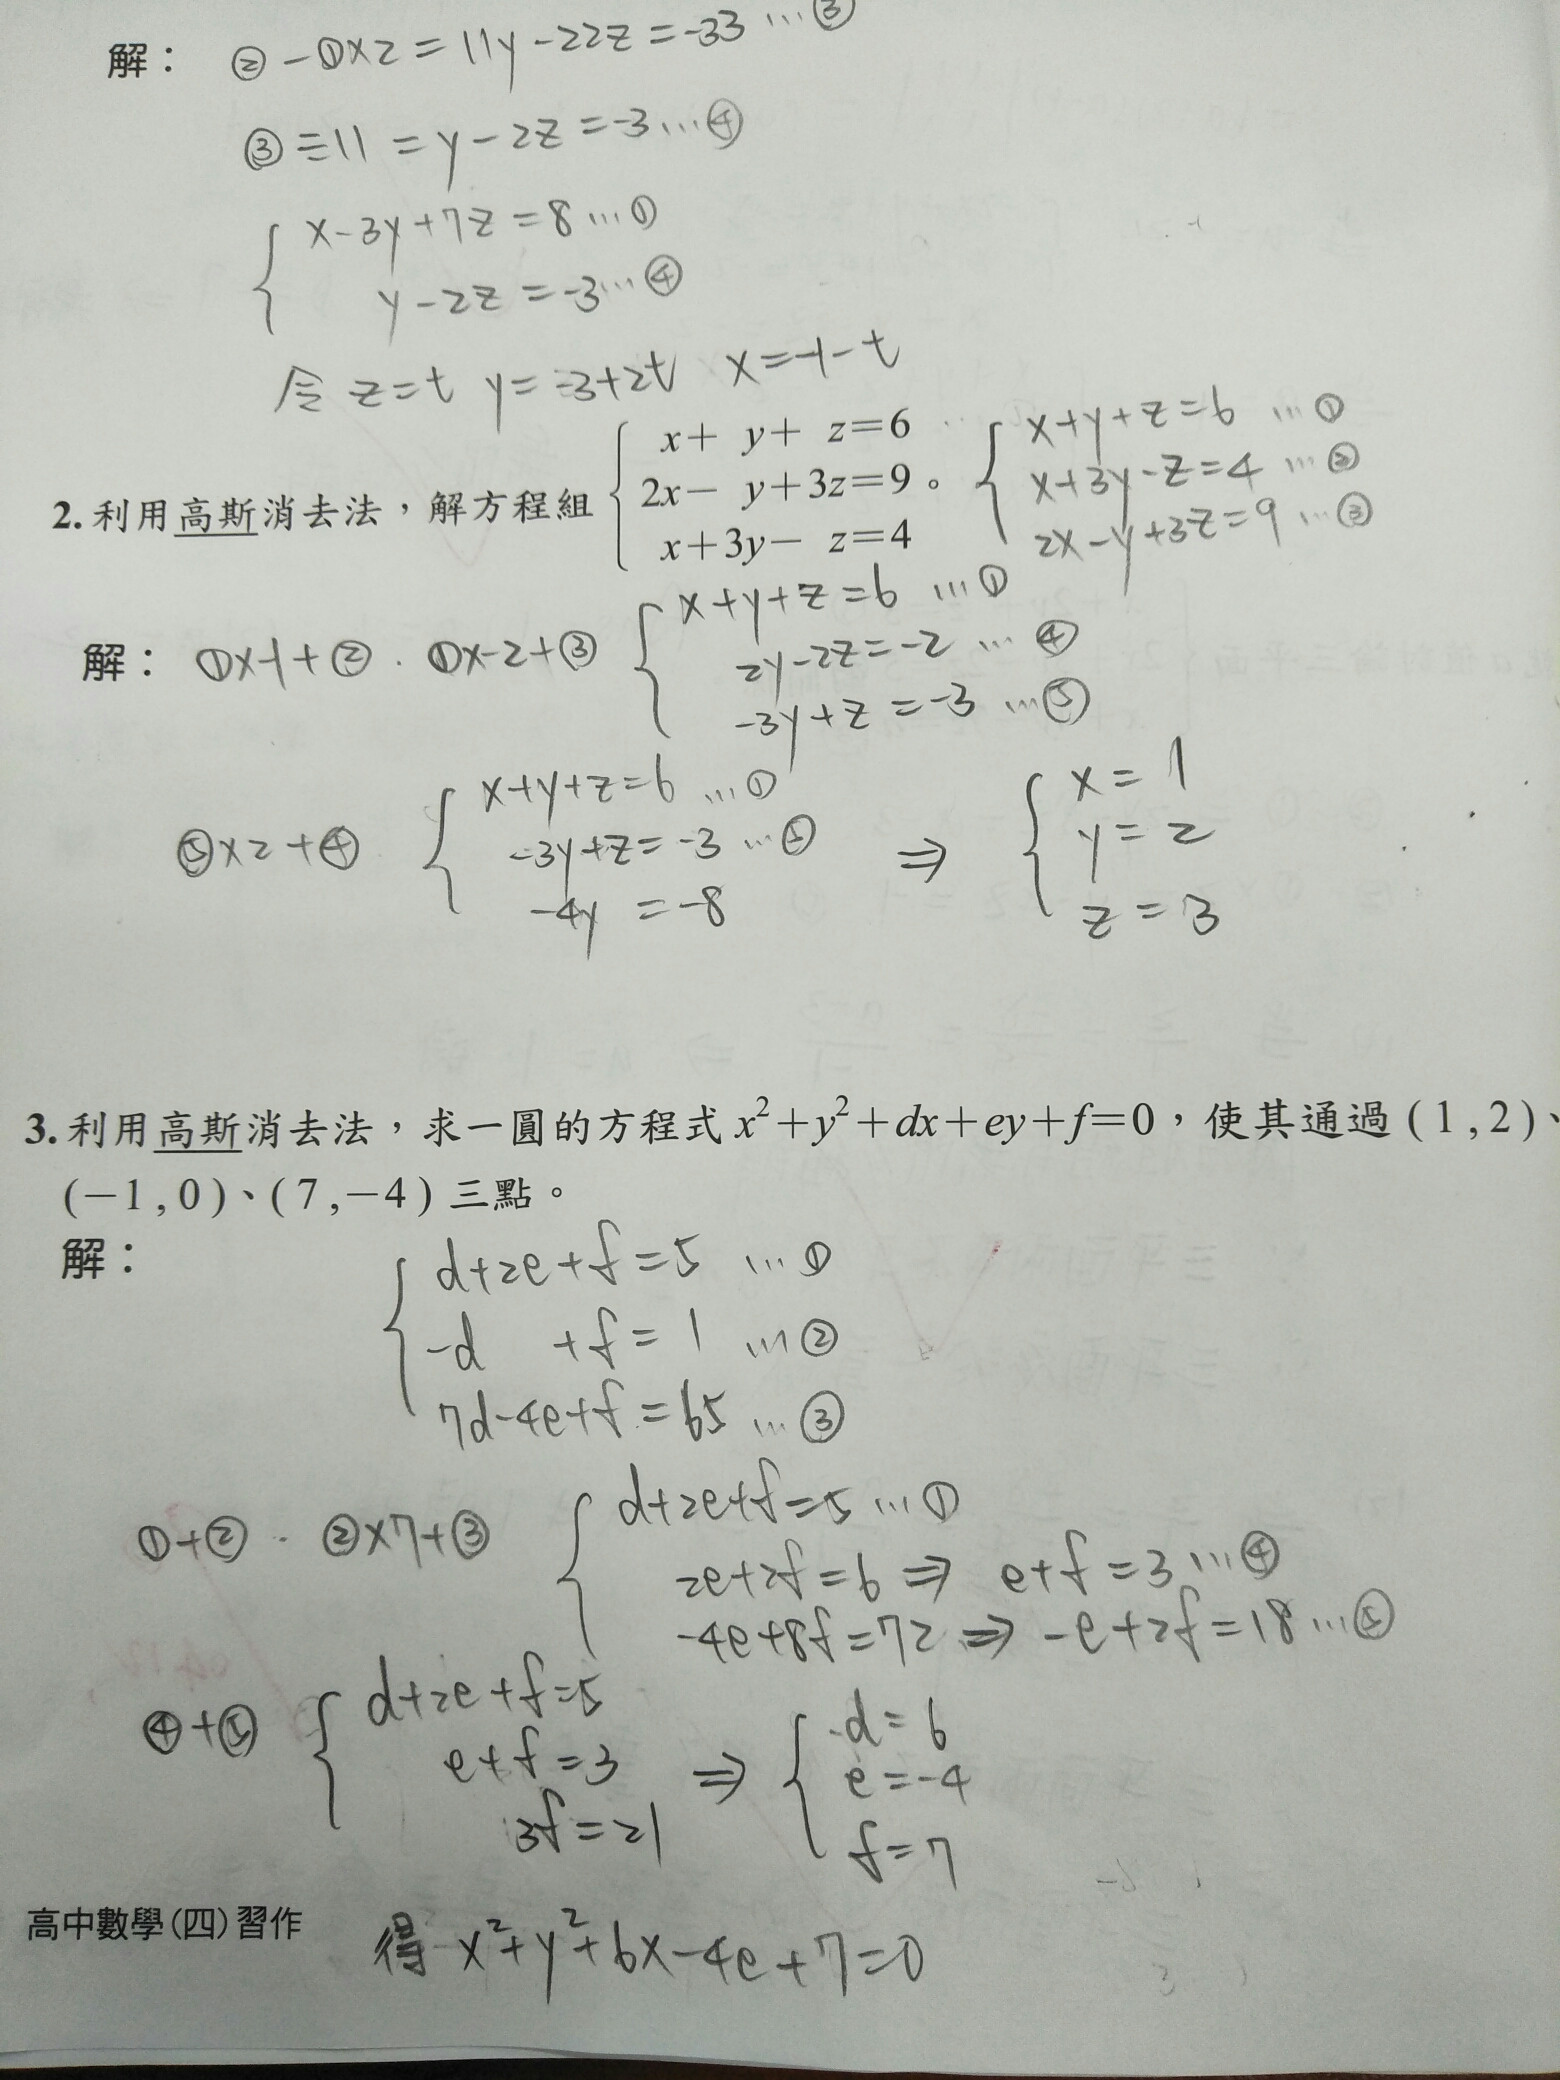 解： ②-①×2=11y-22z=-33 …③
③÷11=y-2z=-3…④
x-3y+7z=8…①
y-2z=-3…④
令 z=t y=-3+2t x=-1-t
2. 利用高斯消去法，解方程組 { x+ y+ z=6
2x- y+3z=9
x+3y- z=4 。
{ x+y+z=6 …①
x+3y-z=4 …②
2x-y+3z=9 …③
解： ①×-1+② . ①×-2+③
{ x+y+z=6 …①
2y-2z=-2 …④
-3y+z=-3 …⑤
⑤×2+④
{ x+y+z=6 …①
-3y+z=-3 …⑤
-4y =-8
⇒ { x=1
y=2
z=3
3. 利用高斯消去法，求一圓的方程式 x²+y²+dx+ey+f=0，使其通過 (1,2)、
(-1,0)、(7,-4) 三點。
解：
{ d+2e+f=5 …①
-d +f=1 …②
7d-4e+f=65 …③
①+② . ②×7+③
{ d+2e+f=5…①
2e+2f=6 ⇒ e+f=3…④
-4e+8f=72 ⇒ -e+2f=18…⑤
④+⑤
{ d+2e+f=5
e+f=3
3f=21
⇒ { d=6
e=-4
f=7
得 x²+y²+6x-4e+7=0
高中數學(四)習作